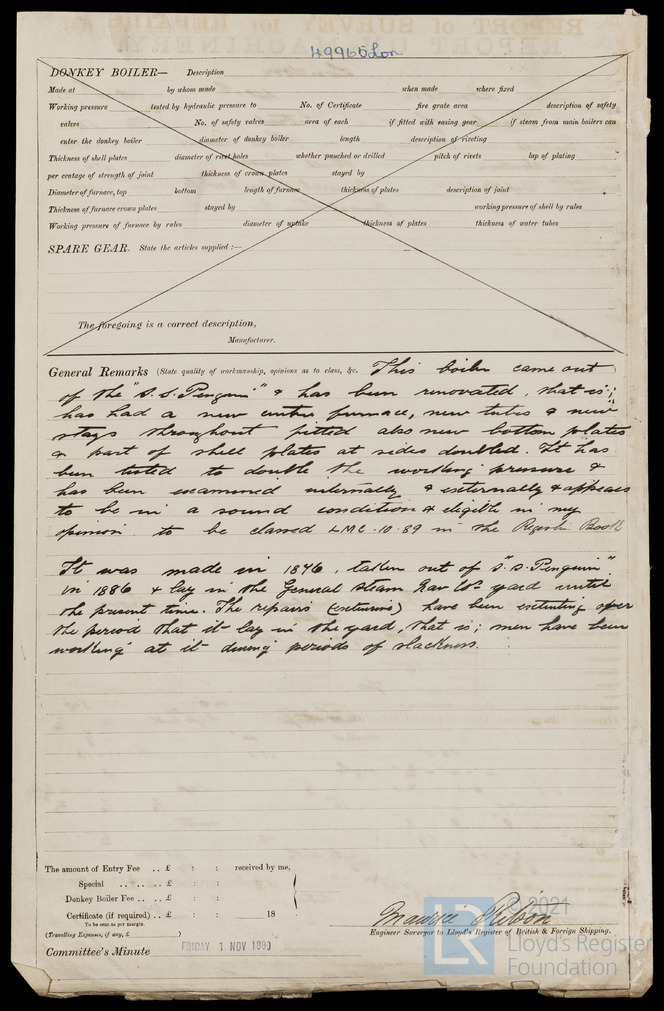 49965 Lon
DONKEY BOILER— Description
Made at by whom made when made where fixed
Working pressure tested by hydraulic pressure to No. of Certificate fire grate area description of safety
valves No. of safety valves area of each if fitted with easing gear if steam from main boilers can
enter the donkey boiler diameter of donkey boiler length description of riveting
Thickness of shell plates diameter of rivet holes whether punched or drilled pitch of rivets lap of plating
per centage of strength of joint thickness of crown plates stayed by
Diameter of furnace, top bottom length of furnace thickness of plates description of joint
Thickness of furnace crown plates stayed by working pressure of shell by rules
Working pressure of furnace by rules diameter of uptake thickness of plates thickness of water tubes
SPARE GEAR. State the articles supplied :—
The foregoing is a correct description,
Manufacturer.
General Remarks (State quality of workmanship, opinions as to class, &c. This boiler came out
of the "S.S. Penguin" & has been renovated, that is;
has had a new centre furnace, new tubes & new
stays throughout fitted also new bottom plates
& part of shell plates at sides doubled. It has
been tested to double the working pressure &
has been examined internally & externally & appears
to be in a sound condition & eligible in my
opinion to be classed LMC 10.89 in the Register Book
It was made in 1876, taken out of "S.S. Penguin"
in 1886 & lay in the General Steam Nav Co's yard until
the present time. The repairs (extensive) have been extending over
the period that it lay in the yard, that is; men have been
working at it during periods of slackness.
The amount of Entry Fee .. £ : : received by me,
Special .. .. .. £ : :
Donkey Boiler Fee .. .. £ : :
Certificate (if required) .. £ : : 18
To be sent as per margin.
(Travelling Expenses, if any, £ )
Maurice
Engineer Surveyor to Lloyd's Register of British & Foreign Shipping.
Committee's Minute FRIDAY 1 NOV 1889
LR
©2021
Lloyd's Register
Foundation